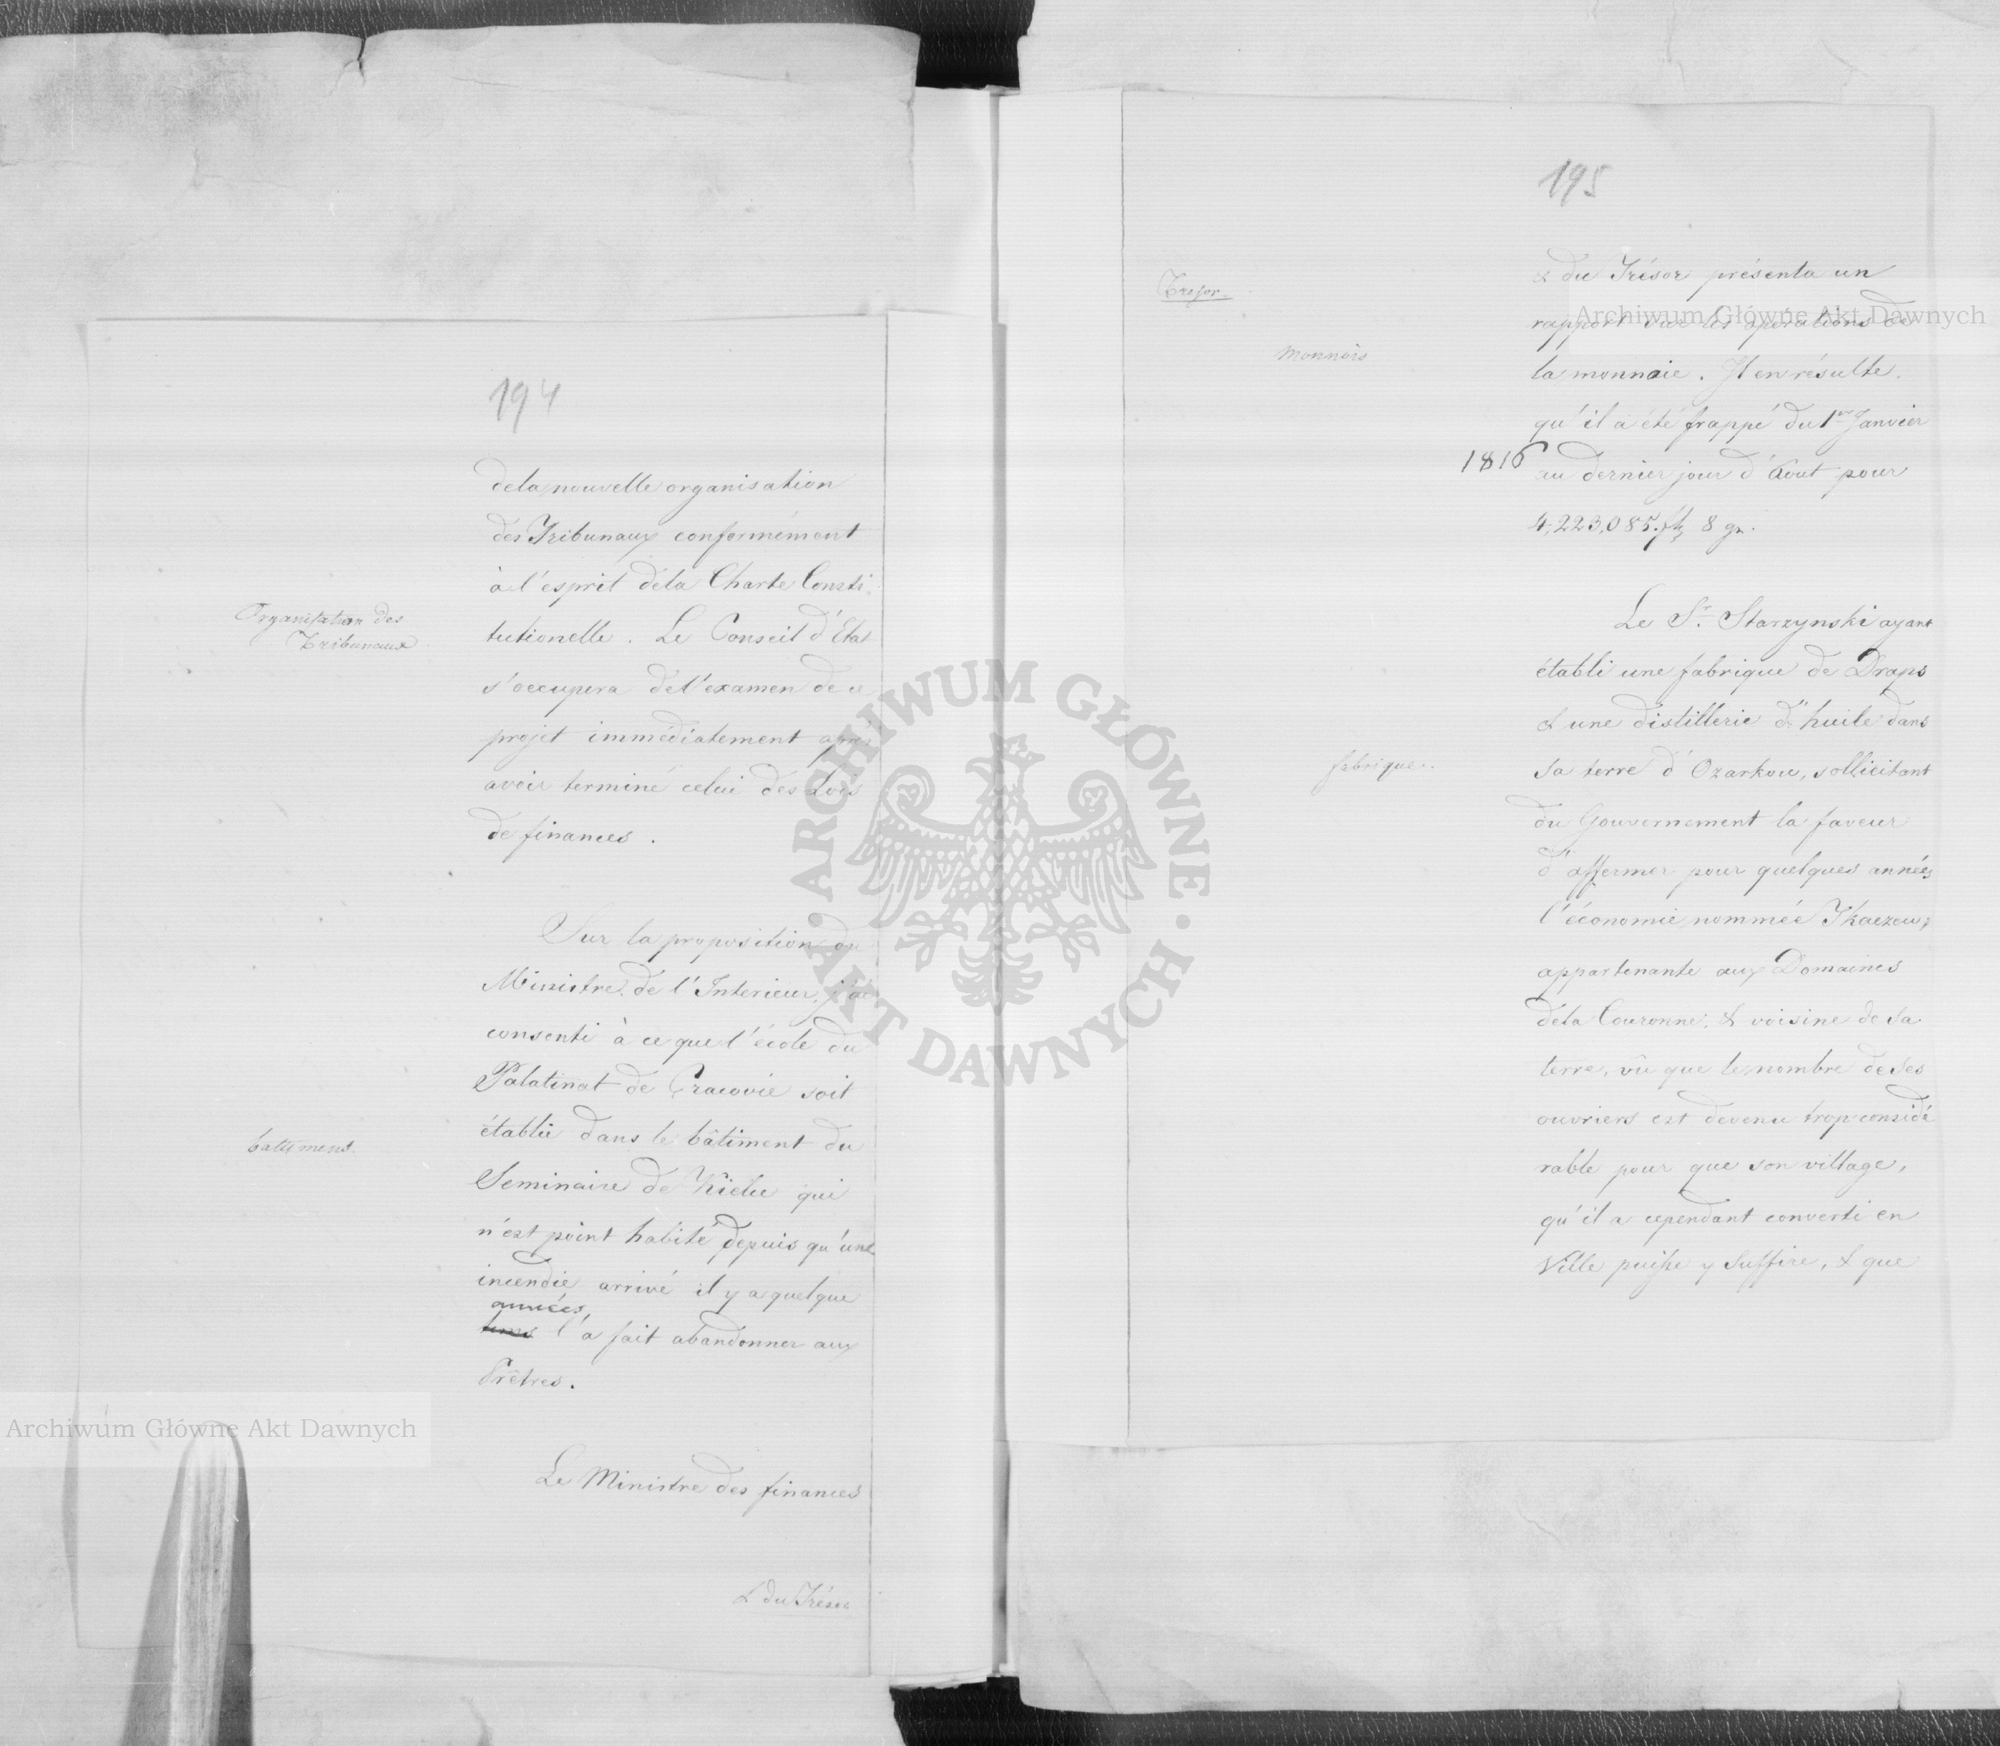 194
dela nouvelle organisation
des Tribunaux conformément
à l'esprit dela Charte Consti-
tutionelle. Le Conseil d'Etat
Organisation des
Tribunaux
s'occupera de l'examen de ce
projet immédiatement après
avoir terminé celui des Lois
de finances.
Sur la proposition du
Ministre de l'Interieur, j'ai
consenti à ce que l'école du
Palatinat de Cracovie soit
établie dans le bâtiment du
batimens
Seminaire de Kielce qui
n'est point habité depuis qu'une
incendie arrivé il y a quelque
années,
tems l'a fait abandonner aux
Prêtres.
Le Ministre des finances
& du Trésor
195
& du Trésor présenta un
Tresor.
rapport sur les opérations de
monnois
la monnaie. Il en résulte
qu'il a été frappé du 1er Janvier
1816
au dernier jour d'Aout pour
4,223,085. fl. 8 gr.
Le Sr. Starzynski ayant
établi une fabrique de Draps
& une distillerie d'huile dans
fabrique.
sa terre d'Ozarkow, sollicitant
du Gouvernement la faveur
d'affermer pour quelques années
l'économie nommée Tkaczew,
appartenante aux Domaines
dela Couronne, & voisine de sa
terre, vû que le nombre de ses
ouvriers est devenu trop considé
rable pour que son village,
qu'il a cependant converti en
Ville puisse y suffire, & que
Archiwum Główne Akt Dawnych
Archiwum Główne Akt Dawnych
ARCHIWUM GŁÓWNE · AKT DAWNYCH ·